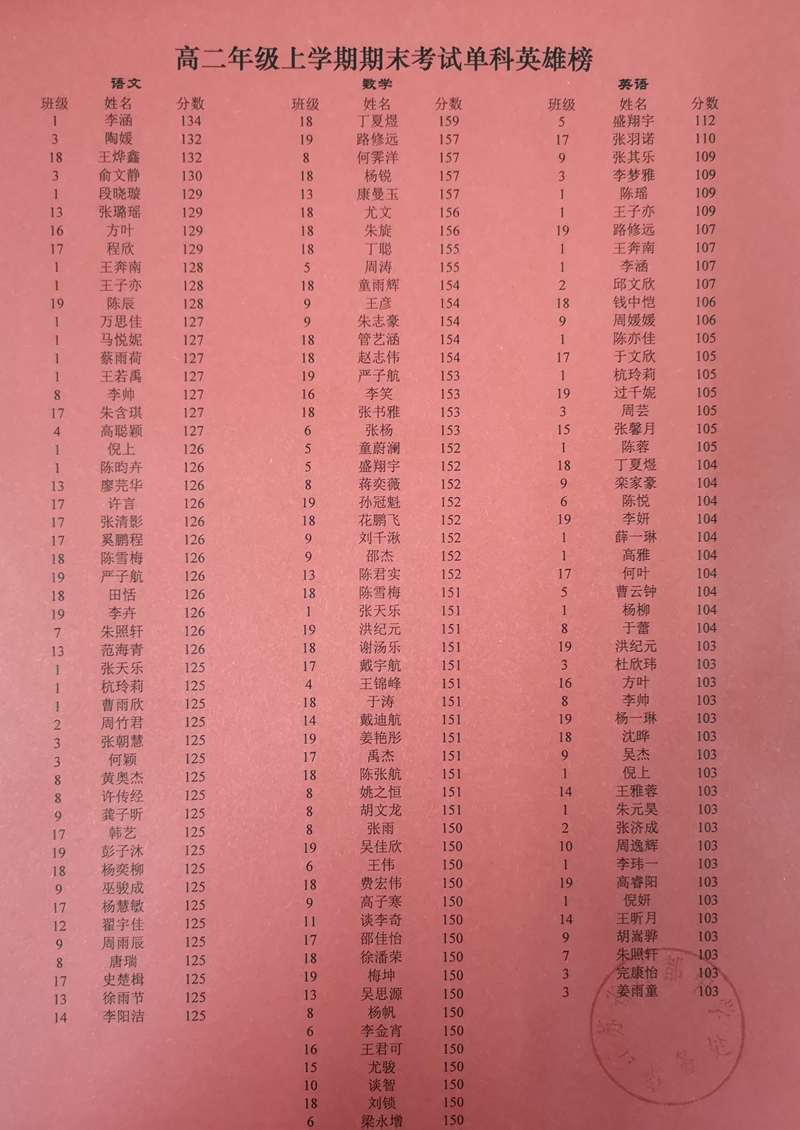 高二年级上学期期末考试单科英雄榜
语文 数学 英语
班级 姓名 分数 班级 姓名 分数 班级 姓名 分数
1 李涵 134 18 丁夏煜 159 5 盛翔宇 112
3 陶媛 132 19 路修远 157 17 张羽诺 110
18 王烨鑫 132 8 何霁洋 157 9 张其乐 109
3 俞文静 130 18 杨锐 157 3 李梦雅 109
1 段晓璇 129 13 康曼玉 157 1 陈瑶 109
13 张璐瑶 129 18 尤文 156 1 王子亦 109
16 方叶 129 18 朱旋 156 19 路修远 107
17 程欣 129 18 丁聪 155 1 王奔南 107
1 王奔南 128 5 周涛 155 1 李涵 107
1 王子亦 128 18 童雨辉 154 2 邱文欣 107
19 陈辰 128 9 王彦 154 18 钱中恺 106
1 万思佳 127 9 朱志豪 154 9 周媛媛 106
1 马悦妮 127 18 管艺涵 154 1 陈亦佳 105
1 蔡雨荷 127 18 赵志伟 154 17 于文欣 105
1 王若禹 127 19 严子航 153 1 杭玲莉 105
8 李帅 127 16 李笑 153 19 过千妮 105
17 朱含琪 127 18 张书雅 153 3 周芸 105
4 高聪颖 127 6 张杨 153 15 张馨月 105
1 倪上 126 5 童蔚澜 152 1 陈蓉 105
1 陈昀卉 126 5 盛翔宇 152 18 丁夏煜 104
13 廖芫华 126 8 蒋奕薇 152 9 栾家豪 104
17 许言 126 19 孙冠魁 152 6 陈悦 104
17 张清影 126 18 花鹏飞 152 19 李妍 104
17 奚鹏程 126 9 刘千湫 152 1 薛一琳 104
18 陈雪梅 126 9 邵杰 152 1 高雅 104
19 严子航 126 13 陈君实 152 17 何叶 104
18 田恬 126 18 陈雪梅 151 5 曹云钟 104
19 李卉 126 1 张天乐 151 1 杨柳 104
7 朱照轩 126 19 洪纪元 151 8 于蕾 104
13 范海青 126 18 谢汤乐 151 19 洪纪元 103
1 张天乐 125 17 戴宇航 151 3 杜欣玮 103
1 杭玲莉 125 4 王锦峰 151 16 方叶 103
1 曹雨欣 125 18 于涛 151 8 李帅 103
2 周竹君 125 14 戴迪航 151 19 杨一琳 103
3 张朝慧 125 19 姜艳彤 151 18 沈晔 103
3 何颖 125 17 禹杰 151 9 吴杰 103
8 黄奥杰 125 18 陈张航 151 1 倪上 103
8 许传经 125 8 姚之恒 151 14 王雅蓉 103
9 龚子昕 125 8 胡文龙 151 1 朱元昊 103
17 韩艺 125 8 张雨 150 2 张济成 103
19 彭子沐 125 19 吴佳欣 150 10 周逸辉 103
18 杨奕柳 125 6 王伟 150 1 李玮一 103
9 巫骏成 125 18 费宏伟 150 19 高睿阳 103
17 杨慧敏 125 9 高子寒 150 1 倪妍 103
12 翟宇佳 125 11 谈李奇 150 14 王昕月 103
9 周雨辰 125 17 邵佳怡 150 9 胡嵩骅 103
8 唐瑞 125 18 徐潘荣 150 7 朱照轩 103
17 史楚楫 125 19 梅坤 150 3 完康怡 103
13 徐雨节 125 13 吴思源 150 3 姜雨童 103
14 李阳洁 125 8 杨帆 150
6 李金肖 150
16 王君可 150
15 尤骏 150
10 谈智 150
18 刘锁 150
6 梁永增 150